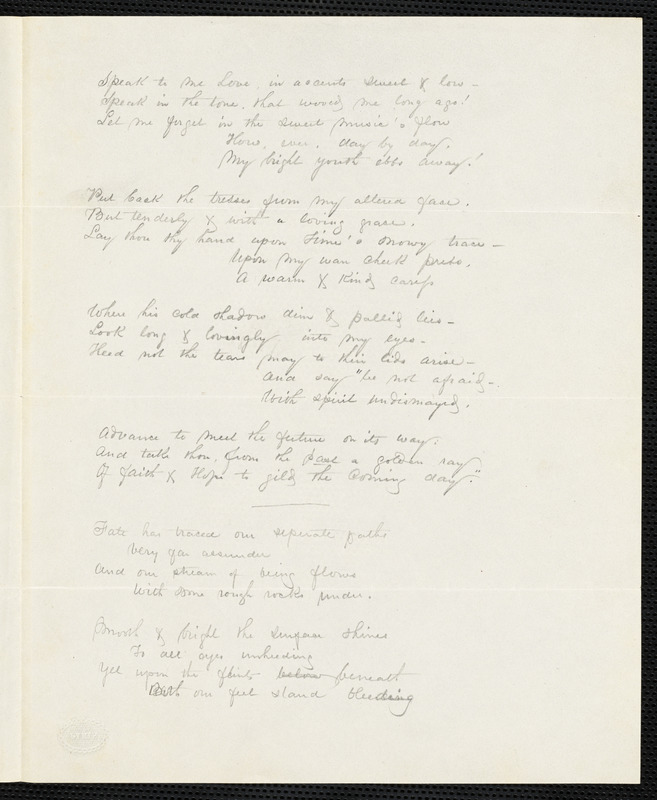 Speak to me Love, in accents sweet & low –
Speak in the tone, that wooed me long ago!
Let me forget in the sweet music's flow
How, ever, day by day,
My bright youth ebbs away!
Put back the tresses from my altered face.
But tenderly & with a loving grace.
Lay thou thy hand upon Time's snowy trace –
Upon my wan cheek press,
A warm & kind caress
Where his cold shadow dim & pallid lies –
Look long & lovingly into my eyes –
Heed not the tears may to their lids arise –
And say "be not afraid –
With spirit undismayed,
Advance to meet the future on its way,
And take thou, from the past a golden ray
Of faith & Hope to gild the Coming day."
Fate has traced our seperate paths
Very far assunder
And our stream of being flows
With some rough rocks under.
Smooth & bright the surface shines
To all eyes unheeding
Yet upon the flints below beneath
Both our feet stand bleeding